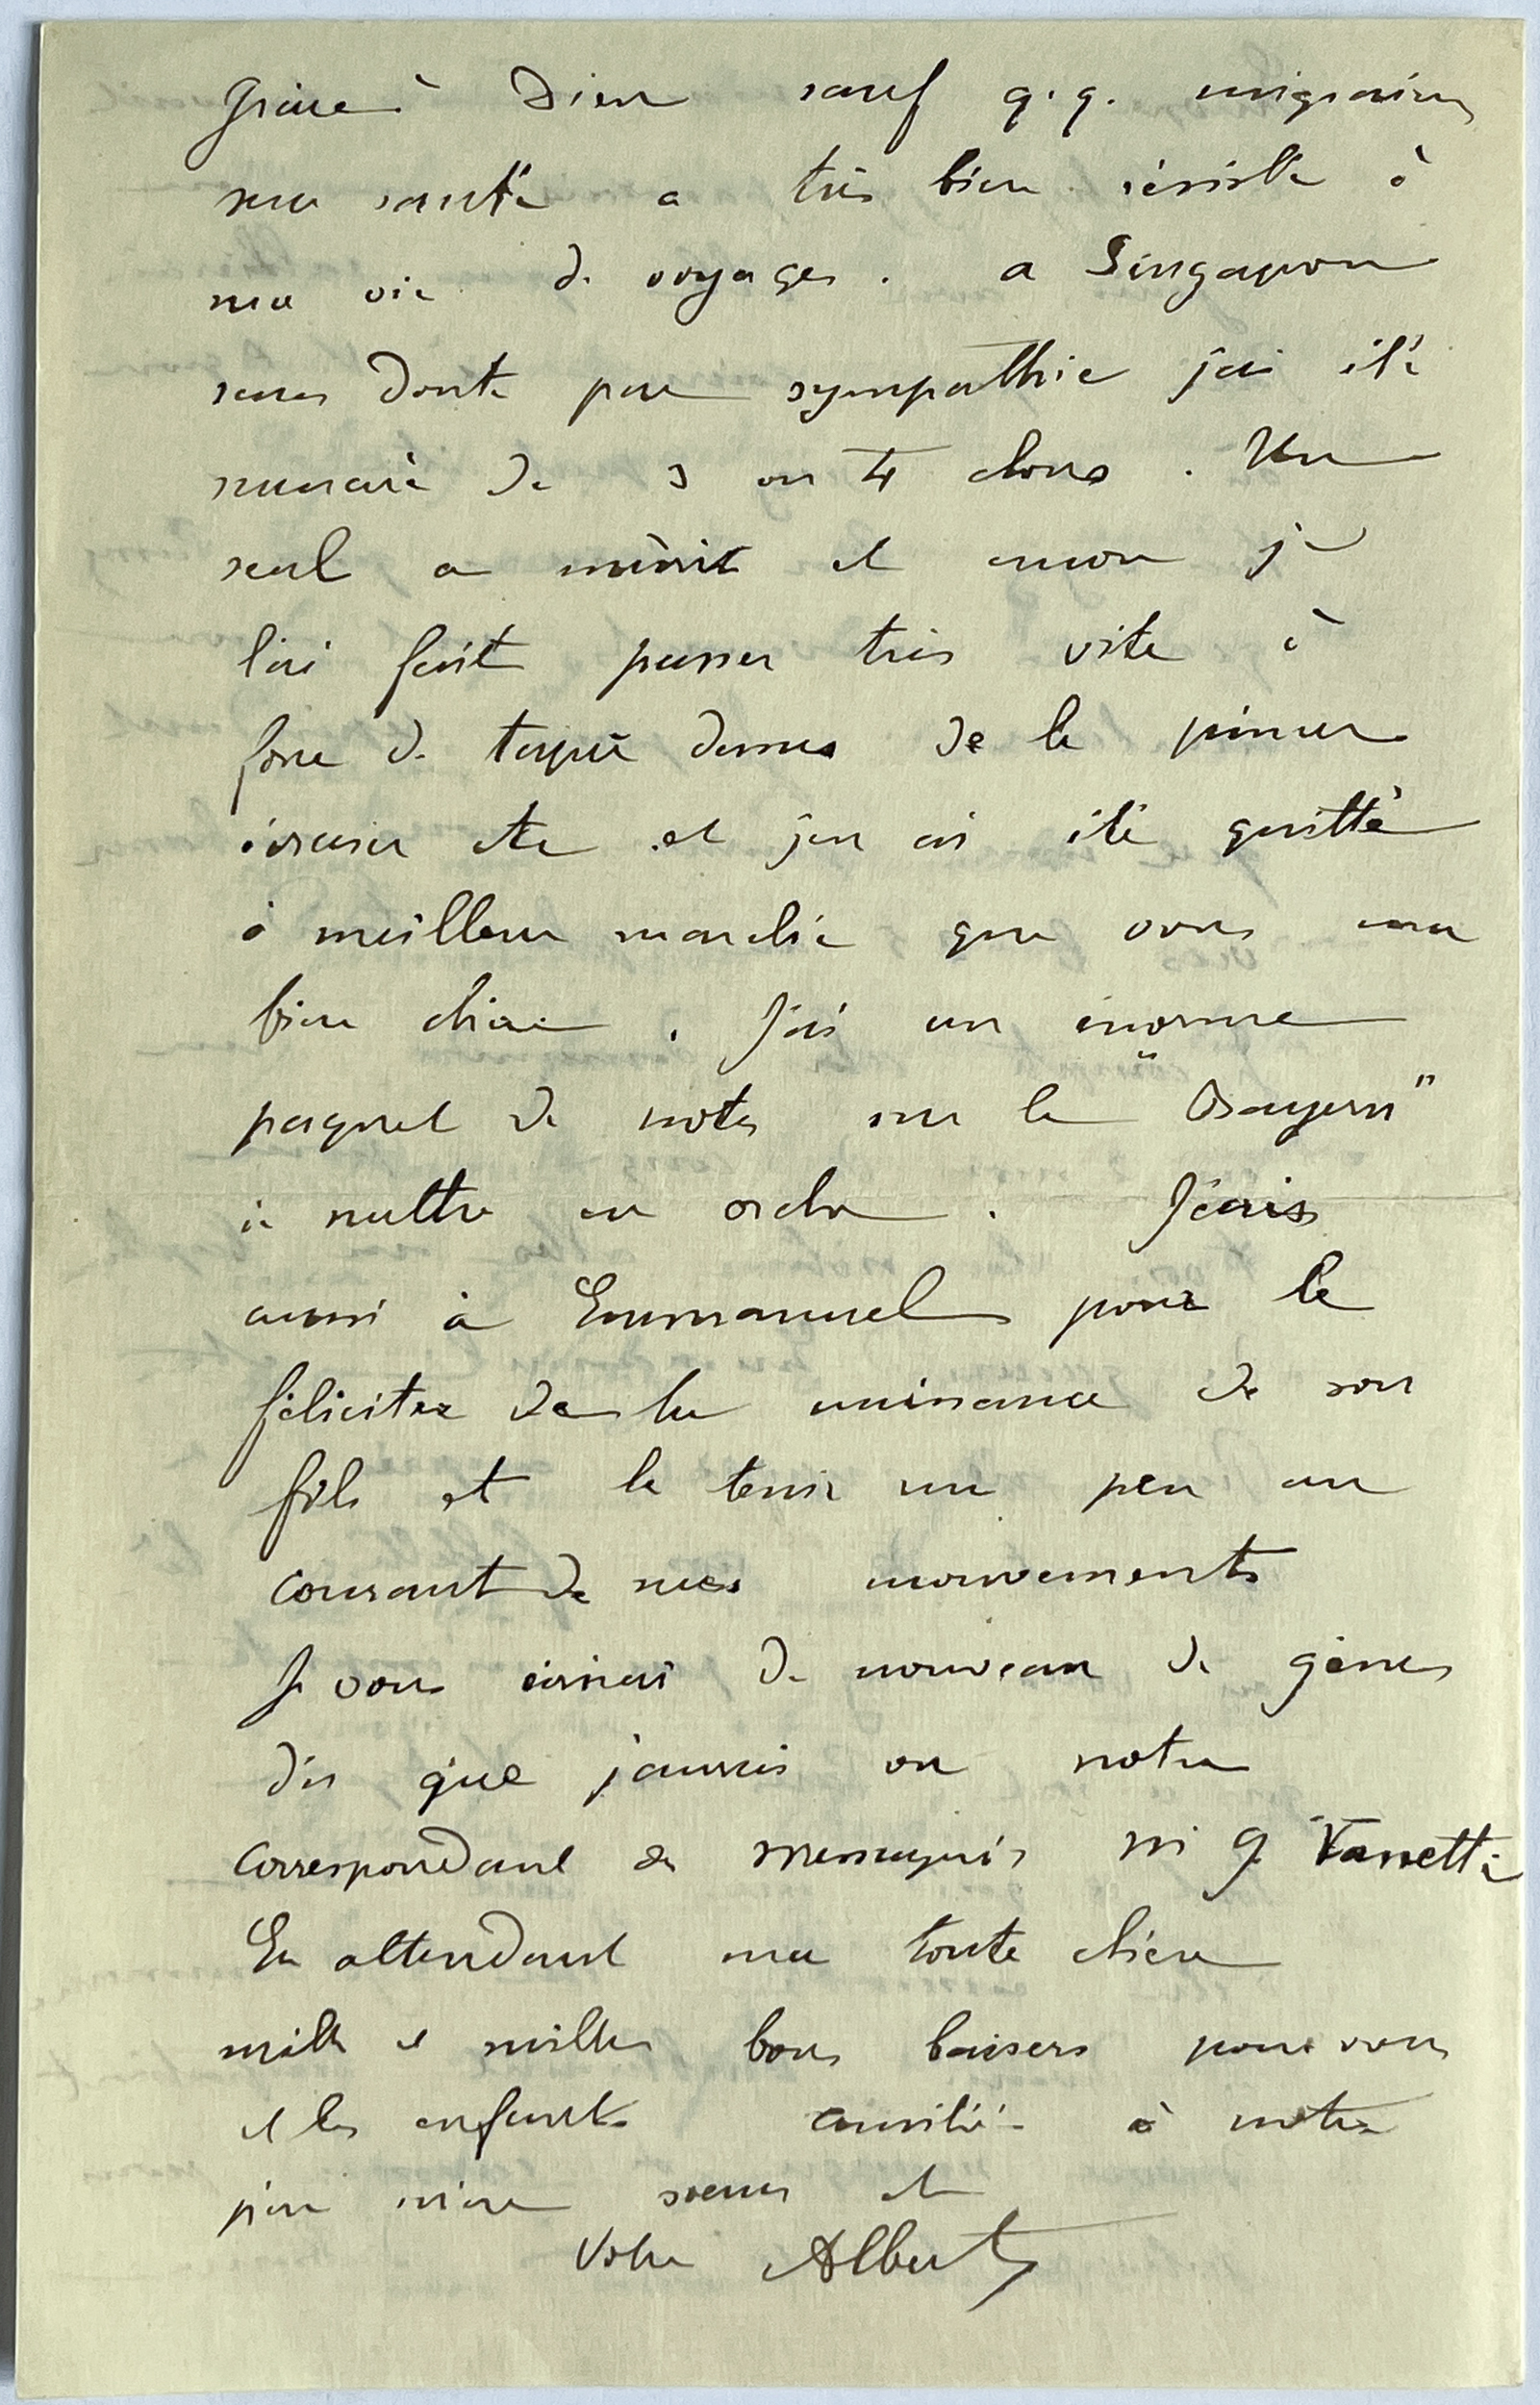 Grâce à Dieu sauf q.q. migraines
ma santé a très bien résisté à
ma vie de voyages. a Singapour
sans doute par sympathie j'ai été
menacé de 3 ou 4 clous. Un
seul a mûrit et encore je
l'ai fait passer très vite à
force de taper dessus de le pincer
écraser etc et j'en ai été quitte
à meilleur marché que vous ma
bien chérie. J'ai un énorme
paquet de notes sur le "Bayern"
à mettre en ordre. J'écris
aussi à Emmanuel pour le
féliciter de la naissance de son
fils et le tenir un peu au
courant de mes mouvements
Je vous écrirai de nouveau de gênes
dès que j'aurais vu notre
correspondant de M G Vanetti
En attendant ma toute chère
mille et milles bons baisers pour vous
et les enfants amitiés à notre
père mère soeurs et
Votre Albert